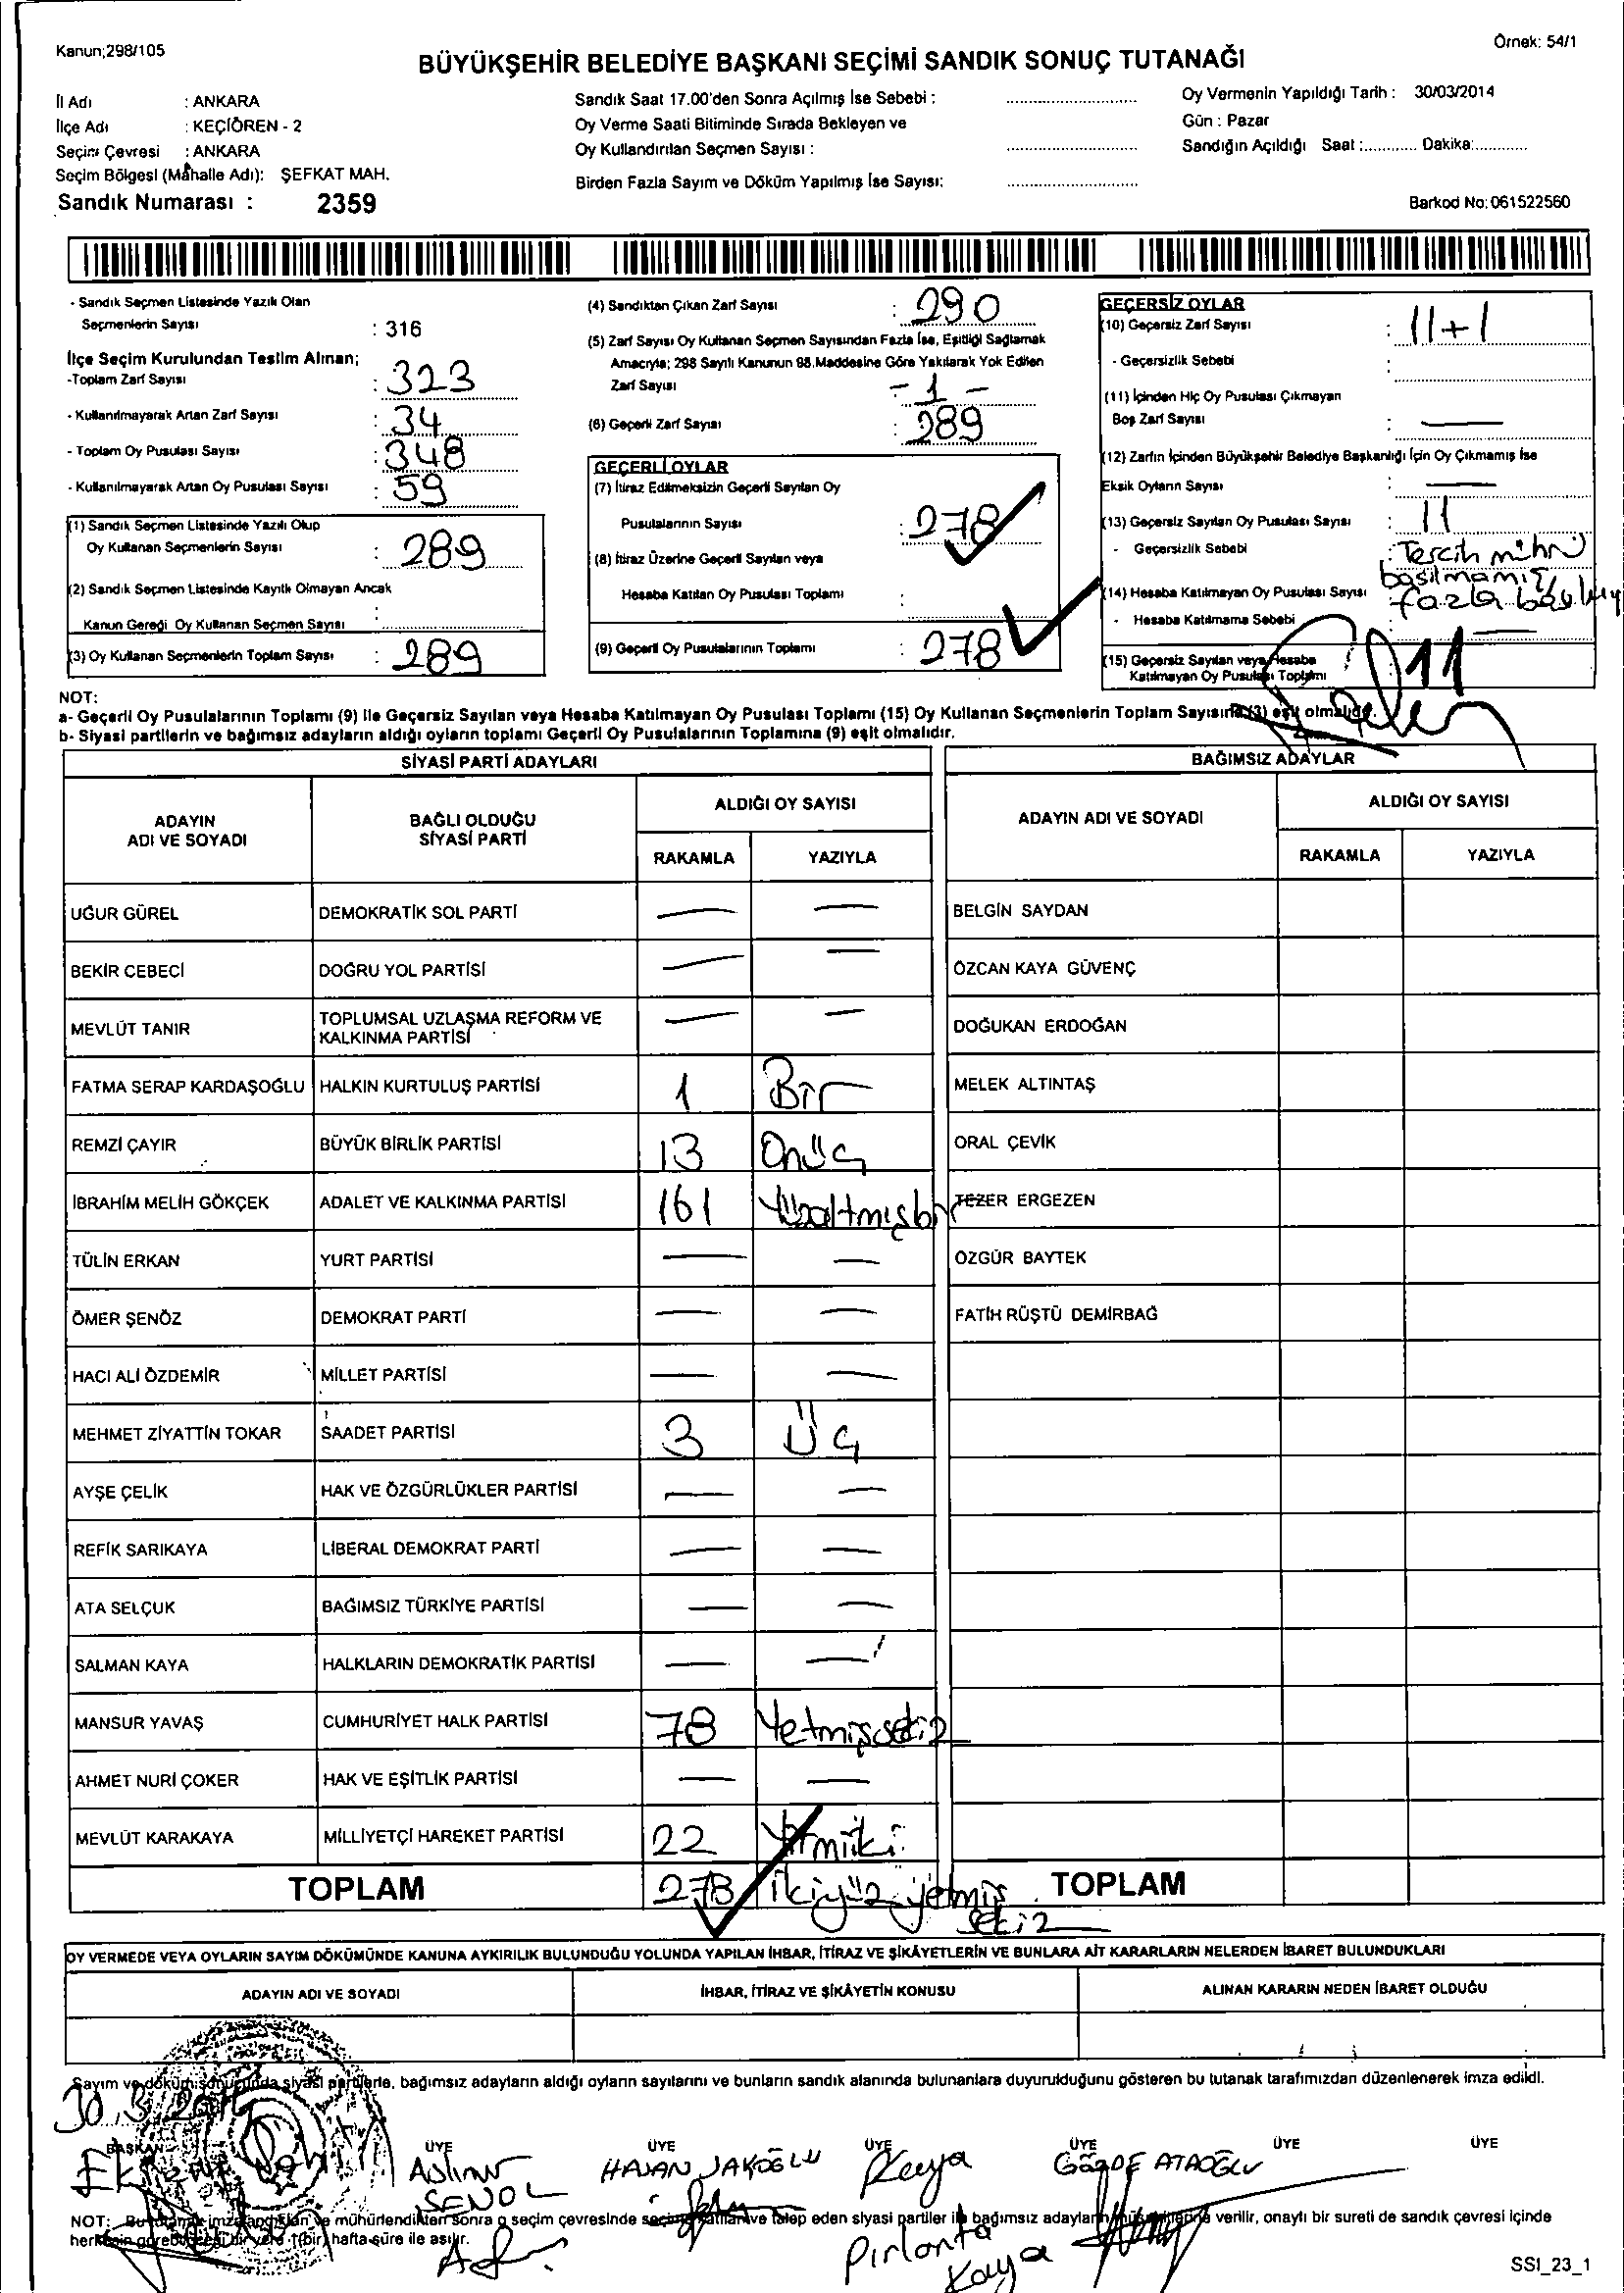 Kanun;298/105
Örnek: 54/1
BÜYÜKŞEHİR BELEDİYE BAŞKANI SEÇİMİ SANDIK SONUÇ TUTANAĞI
İl Adı : ANKARA
İlçe Adı : KEÇİÖREN - 2
Seçim Çevresi : ANKARA
Seçim Bölgesi (Mahalle Adı): ŞEFKAT MAH.
Sandık Numarası : 2359
Sandık Saat 17.00'den Sonra Açılmış İse Sebebi :
Oy Verme Saati Bitiminde Sırada Bekleyen ve
Oy Kullandırılan Seçmen Sayısı :
Birden Fazla Sayım ve Döküm Yapılmış İse Sayısı:
Oy Vermenin Yapıldığı Tarih : 30/03/2014
Gün : Pazar
Sandığın Açıldığı Saat :............ Dakika:............
Barkod No: 061522560
- Sandık Seçmen Listesinde Yazılı Olan
Seçmenlerin Sayısı : 316
İlçe Seçim Kurulundan Teslim Alınan;
-Toplam Zarf Sayısı : 323
- Kullanılmayarak Artan Zarf Sayısı : 34
- Toplam Oy Pusulası Sayısı : 348
- Kullanılmayarak Artan Oy Pusulası Sayısı : 59
(1) Sandık Seçmen Listesinde Yazılı Olup
Oy Kullanan Seçmenlerin Sayısı : 289
(2) Sandık Seçmen Listesinde Kayıtlı Olmayan Ancak
Kanun Gereği Oy Kullanan Seçmen Sayısı :
(3) Oy Kullanan Seçmenlerin Toplam Sayısı : 289
(4) Sandıktan Çıkan Zarf Sayısı : 290
(5) Zarf Sayısı Oy Kullanan Seçmen Sayısından Fazla İse, Eşitliği Sağlamak
Amacıyla; 298 Sayılı Kanunun 98.Maddesine Göre Yakılarak Yok Edilen
Zarf Sayısı : - 1 -
(6) Geçerli Zarf Sayısı : 289
GEÇERLİ OYLAR
(7) İtiraz Edilmeksizin Geçerli Sayılan Oy
Pusulalarının Sayısı : 278
(8) İtiraz Üzerine Geçerli Sayılan veya
Hesaba Katılan Oy Pusulası Toplamı :
(9) Geçerli Oy Pusulalarının Toplamı : 278
GEÇERSİZ OYLAR
(10) Geçersiz Zarf Sayısı : 11+1
- Geçersizlik Sebebi :
(11) İçinden Hiç Oy Pusulası Çıkmayan
Boş Zarf Sayısı : —
(12) Zarfın İçinden Büyükşehir Belediye Başkanlığı İçin Oy Çıkmamış İse
Eksik Oyların Sayısı : —
(13) Geçersiz Sayılan Oy Pusulası Sayısı : 11
- Geçersizlik Sebebi : Tercih mührü
basılmamış
(14) Hesaba Katılmayan Oy Pusulası Sayısı : fazla
- Hesaba Katılmama Sebebi : —
(15) Geçersiz Sayılan veya Hesaba
Katılmayan Oy Pusulası Toplamı 11
NOT:
a- Geçerli Oy Pusulalarının Toplamı (9) İle Geçersiz Sayılan veya Hesaba Katılmayan Oy Pusulası Toplamı (15) Oy Kullanan Seçmenlerin Toplam Sayısına (3) eşit olmalıdır.
b- Siyasi partilerin ve bağımsız adayların aldığı oyların toplamı Geçerli Oy Pusulalarının Toplamına (9) eşit olmalıdır.
SİYASİ PARTİ ADAYLARI
ADAYIN ADI VE SOYADI BAĞLI OLDUĞU SİYASİ PARTİ ALDIĞI OY SAYISI
RAKAMLA YAZIYLA
UĞUR GÜREL DEMOKRATİK SOL PARTİ — —
BEKİR CEBECİ DOĞRU YOL PARTİSİ — —
MEVLÜT TANIR TOPLUMSAL UZLAŞMA REFORM VE KALKINMA PARTİSİ — —
FATMA SERAP KARDAŞOĞLU HALKIN KURTULUŞ PARTİSİ 1 Bir
REMZİ ÇAYIR BÜYÜK BİRLİK PARTİSİ 13 Onüç
İBRAHİM MELİH GÖKÇEK ADALET VE KALKINMA PARTİSİ 161 Yüzaltmışbir
TÜLİN ERKAN YURT PARTİSİ — —
ÖMER ŞENÖZ DEMOKRAT PARTİ — —
HACI ALİ ÖZDEMİR MİLLET PARTİSİ — —
MEHMET ZİYATTİN TOKAR SAADET PARTİSİ 3 Üç
AYŞE ÇELİK HAK VE ÖZGÜRLÜKLER PARTİSİ — —
REFİK SARIKAYA LİBERAL DEMOKRAT PARTİ — —
ATA SELÇUK BAĞIMSIZ TÜRKİYE PARTİSİ — —
SALMAN KAYA HALKLARIN DEMOKRATİK PARTİSİ — —
MANSUR YAVAŞ CUMHURİYET HALK PARTİSİ 78 Yetmişsekiz
AHMET NURİ ÇOKER HAK VE EŞİTLİK PARTİSİ — —
MEVLÜT KARAKAYA MİLLİYETÇİ HAREKET PARTİSİ 22 Yirmiiki
TOPLAM 278 ikiyüz yetmiş
sekiz
BAĞIMSIZ ADAYLAR
ADAYIN ADI VE SOYADI ALDIĞI OY SAYISI
RAKAMLA YAZIYLA
BELGİN SAYDAN
ÖZCAN KAYA GÜVENÇ
DOĞUKAN ERDOĞAN
MELEK ALTINTAŞ
ORAL ÇEVİK
TEZER ERGEZEN
ÖZGÜR BAYTEK
FATİH RÜŞTÜ DEMİRBAĞ
TOPLAM
OY VERMEDE VEYA OYLARIN SAYIM DÖKÜMÜNDE KANUNA AYKIRILIK BULUNDUĞU YOLUNDA YAPILAN İHBAR, İTİRAZ VE ŞİKÂYETLERİN VE BUNLARA AİT KARARLARIN NELERDEN İBARET BULUNDUKLARI
ADAYIN ADI VE SOYADI İHBAR, İTİRAZ VE ŞİKÂYETİN KONUSU ALINAN KARARIN NEDEN İBARET OLDUĞU
Sayım ve döküm sonucunda siyasi partilerle, bağımsız adayların aldığı oyların sayılarını ve bunların sandık alanında bulunanlara duyurulduğunu gösteren bu tutanak tarafımızdan düzenlenerek imza edildi.
30.3.2014
BAŞKAN ÜYE ÜYE ÜYE ÜYE ÜYE ÜYE
Aslıhan ŞENOL
HASAN
Kaya
GÖZDE ATAOĞLU
NOT: Bu tutanak imzalandıktan ve mühürlendikten sonra o seçim çevresinde seçime katılan ve talep eden siyasi partiler ile bağımsız adayların müşahitlerine verilir, onaylı bir sureti de sandık çevresi içinde
herkesin görebileceği bir yere 1 (bir) hafta süre ile asılır.
Pırlanta
Kaya
SSI_23_1